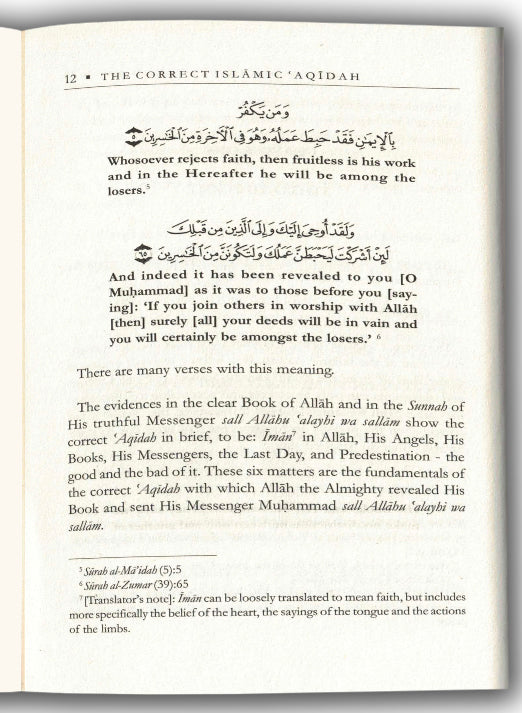 12 ▪ THE CORRECT ISLĀMIC ‘AQĪDAH
وَمَن يَكْفُرْ
بِٱلْإِيمَٰنِ فَقَدْ حَبِطَ عَمَلُهُۥ وَهُوَ فِى ٱلْءَاخِرَةِ مِنَ ٱلْخَٰسِرِينَ ٥
Whosoever rejects faith, then fruitless is his work
and in the Hereafter he will be among the
losers.⁵
وَلَقَدْ أُوحِىَ إِلَيْكَ وَإِلَى ٱلَّذِينَ مِن قَبْلِكَ
لَئِنْ أَشْرَكْتَ لَيَحْبَطَنَّ عَمَلُكَ وَلَتَكُونَنَّ مِنَ ٱلْخَٰسِرِينَ ٦٥
And indeed it has been revealed to you [O
Muḥammad] as it was to those before you [say-
ing]: ‘If you join others in worship with Allāh
[then] surely [all] your deeds will be in vain and
you will certainly be amongst the losers.’ ⁶
There are many verses with this meaning.
The evidences in the clear Book of Allāh and in the Sunnah of
His truthful Messenger sall Allāhu ‘alayhi wa sallām show the
correct ‘Aqīdah in brief, to be: Īmān⁷ in Allāh, His Angels, His
Books, His Messengers, the Last Day, and Predestination - the
good and the bad of it. These six matters are the fundamentals of
the correct ‘Aqīdah with which Allāh the Almighty revealed His
Book and sent His Messenger Muḥammad sall Allāhu ‘alayhi wa
sallām.
⁵ Sūrah al-Mā’idah (5):5
⁶ Sūrah al-Zumar (39):65
⁷ [Translator’s note]: Īmān can be loosely translated to mean faith, but includes
more specifically the belief of the heart, the sayings of the tongue and the actions
of the limbs.